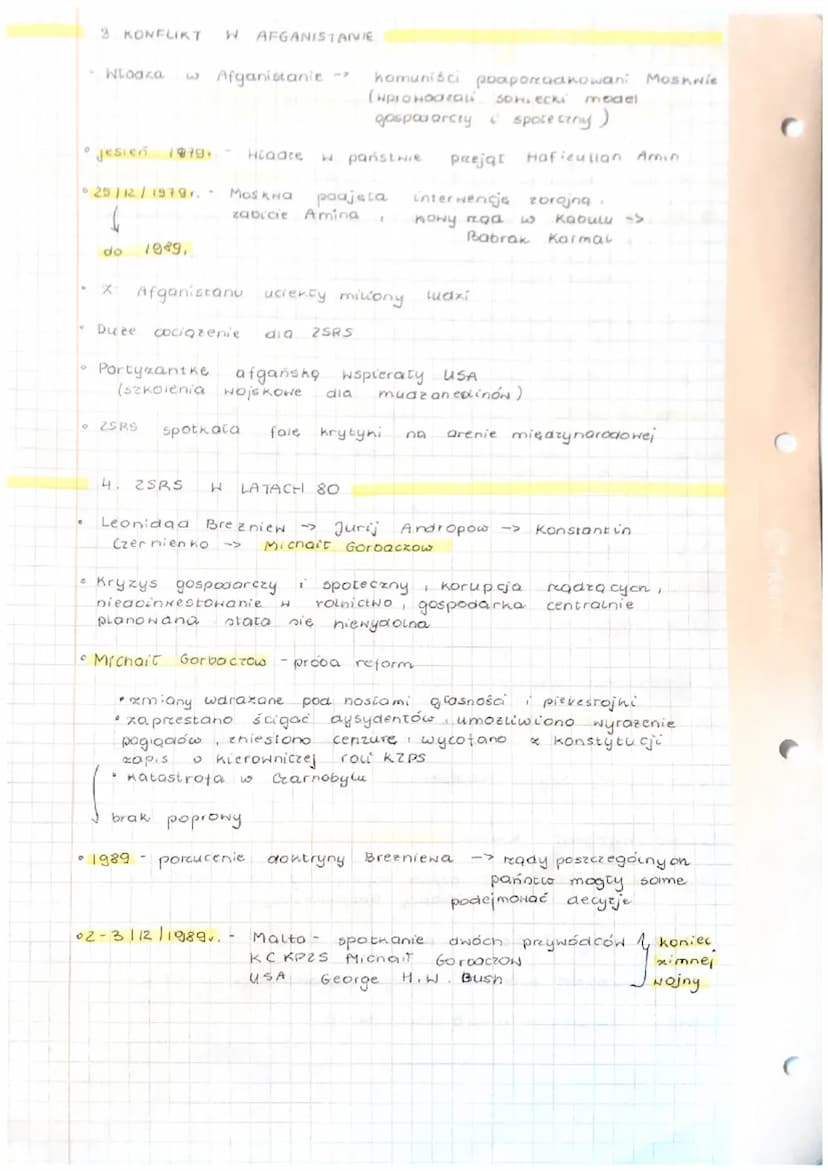 3 KONFLIKT W AFGANISTANIE
• Władza w Afganistanie -> komuniści podporządkowani Moskwie
(wprowadzali sowiecki model
gospodarczy i społeczny)
• jesień 1979r - władze w państwie przejął Hafizullah Amin
• 25/12/1979r. - Moskwa podjęła interwencję zbrojną,
zabicie Amina, nowy rząd w Kabulu ->
Babrak Karmal
do 1989.
• Z Afganistanu uciekły miliony ludzi
• Duże obciążenie dla ZSRS
• Partyzantkę afgańską wspierały USA
(szkolenia wojskowe dla mudżahedinów)
• ZSRS spotkała falę krytyki na arenie międzynarodowej
4. ZSRS W LATACH 80
• Leonidad Breżniew -> Jurij Andropow -> Konstantin
Czernienko -> Michaił Gorbaczow
• Kryzys gospodarczy i społeczny, korupcja rządzących,
niedoinwestowanie w rolnictwo, gospodarka centralnie
planowana stała się niewydolna
• Michaił Gorbaczow - próba reform
• zmiany wdrażane pod hasłami głasności i pieriestrojki
• zaprzestano ścigać dysydentów, umożliwiono wyrażenie
poglądów, zniesiono cenzurę, wycofano z konstytucji
zapis o kierowniczej roli KZPS
• katastrofa w Czarnobylu
brak poprawy
• 1989 - porzucenie doktryny Breżniewa -> rządy poszczególnych
państw mogły same
podejmować decyzje
• 2-3/12/1989r. - Malta - spotkanie dwóch przywódców koniec
KC KPZS Michaił Gorbaczow zimnej
USA George H.W. Bush wojny